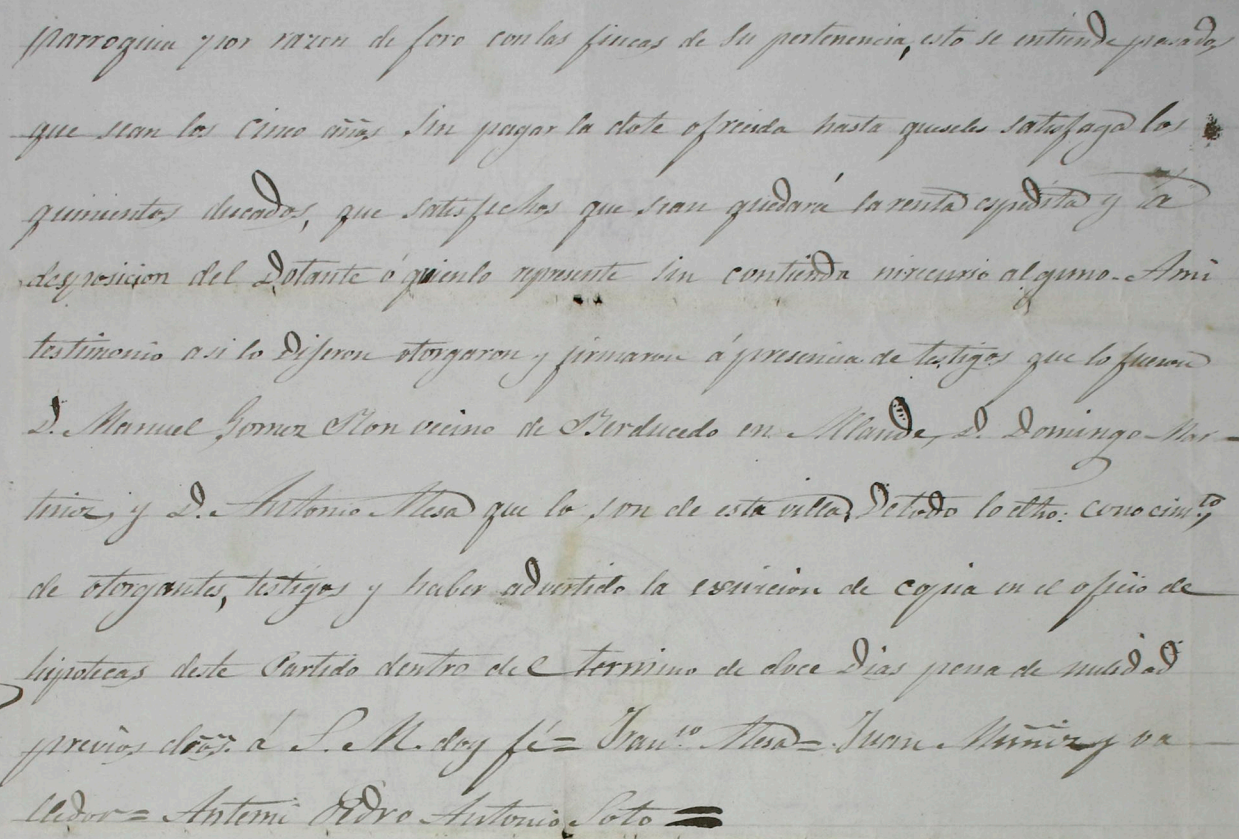 parroquia y por razon de foro con las fincas de su pertenencia, esto se entiende pasados
que sean los cinco años sin pagar la dote ofrecida hasta queseles satisfaga los
quinientos ducados, que satisfechos que sean quedará la renta espedita y á la
desposicion del Dotante ó quienlo represente sin contienda nirecurso alguno. Ami
testimonio asi lo Dijeron otorgaron y firmaron á presencia de testigos que lo fueron
D. Manuel Gomez Ron vecino de Berducedo en Allande, D. Domingo Mar-
tinez, y D. Antonio Mesa que lo son de esta villa, Detodo loctho: conocimto,
de otorgantes, testigos y haber advertido la exsivicion de copia en el oficio de
hipotecas deste Partido dentro del termino de doce Dias pena de nulidad
previos dños. á S. M. doy fé = Franco Mesa = Juan Muñiz y va
lledor = Antemi Pedro Antonio Soto =